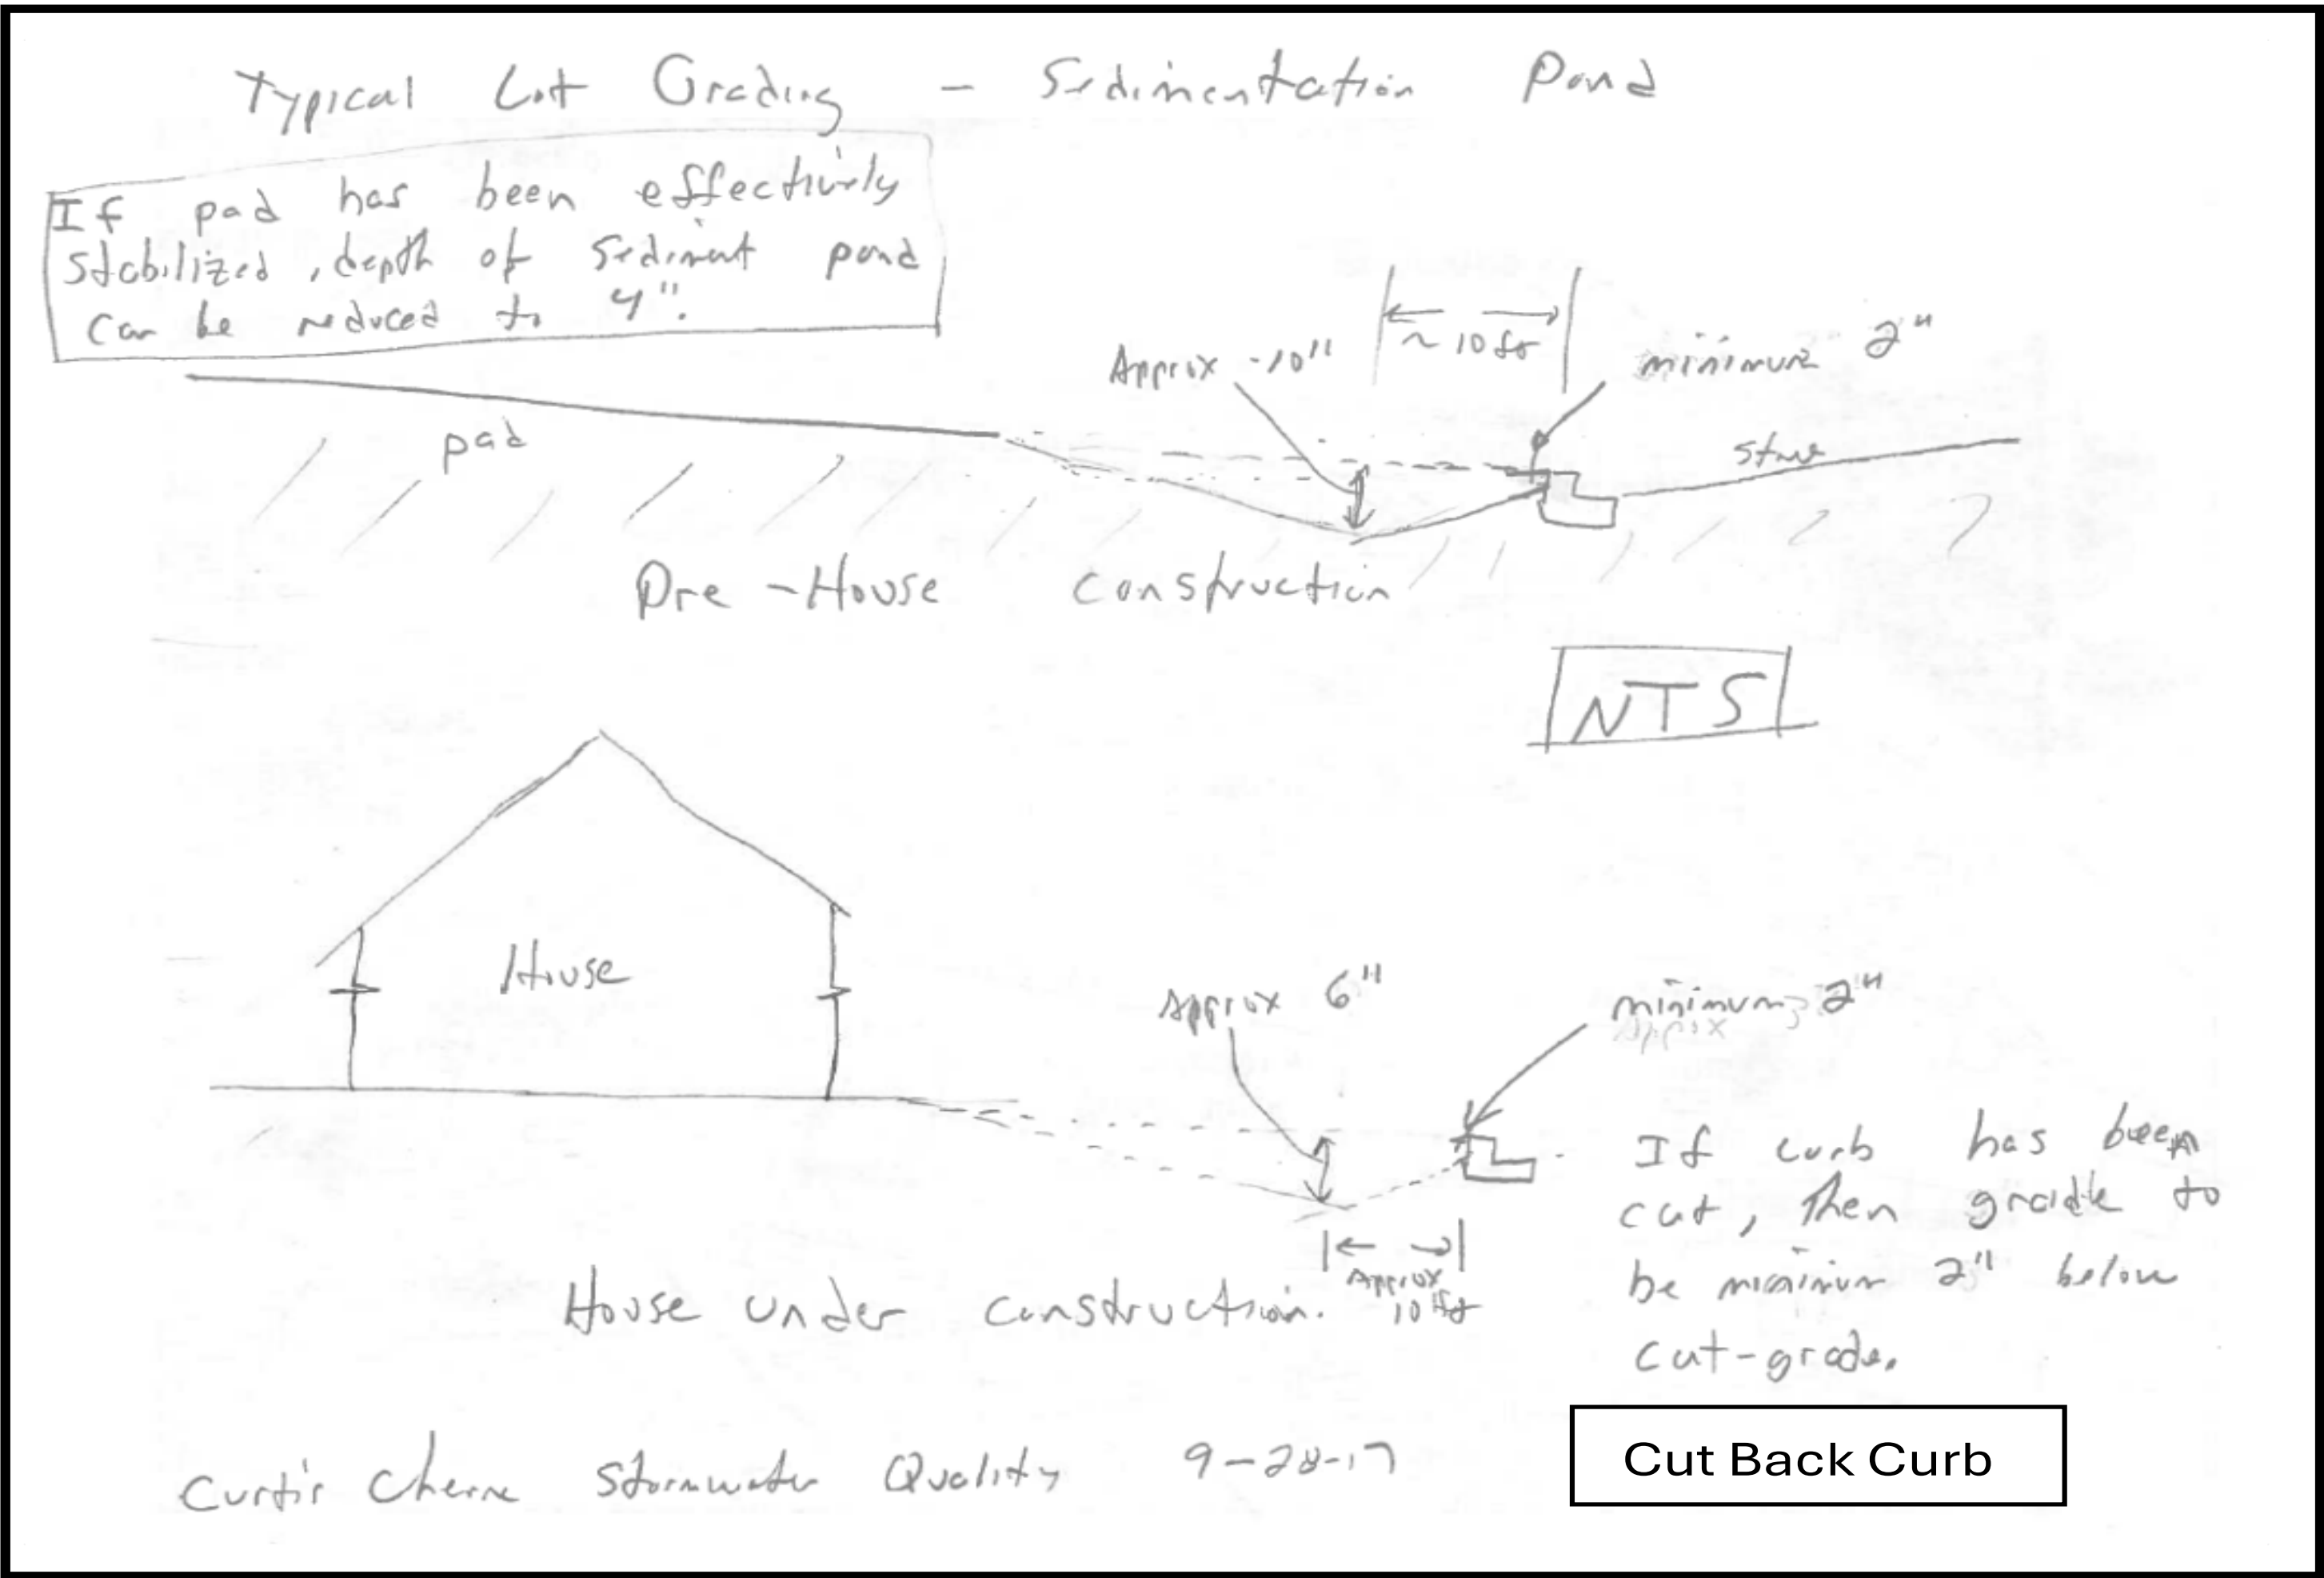 Typical Lot Grading - Sedimentation Pond
If pad has been effectively
stabilized, depth of sediment pond
can be reduced to 4".
Approx -10"
~ 10 ft
minimum 2"
pad
Pre-House Construction
NTS
House
Approx 6"
minimum 2"
Approx
If curb has been
cut, then grade to
be minimum 2" below
cut-grade.
Approx
10 ft
House under construction.
Curtis Cherne Stormwater Quality 9-28-17
Cut Back Curb